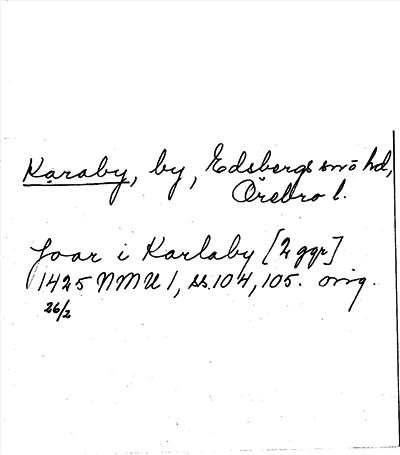 Karaby, by, Edsbergs sn o hd,
Örebro l.
Joar i Karlaby [2 ggr]
1425 NMU 1, ss. 104, 105. orig.
26/2